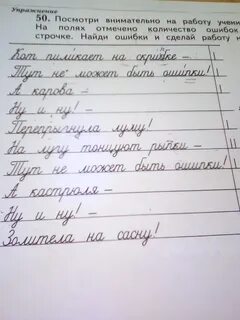 Упражнение
50. Посмотри внимательно на работу учени
На полях отмечено количество ошибок
строчке. Найди ошибки и сделай работу н
Кот пиликает на скрипке –
Тут не может быть ошипки!
А карова –
Ну и ну! –
Перепрыгнула луму!
На лугу тонцуют рыпки –
Тут не может быть ошипки!
А кастрюля –
Ну и ну! –
Золитела на сасну!